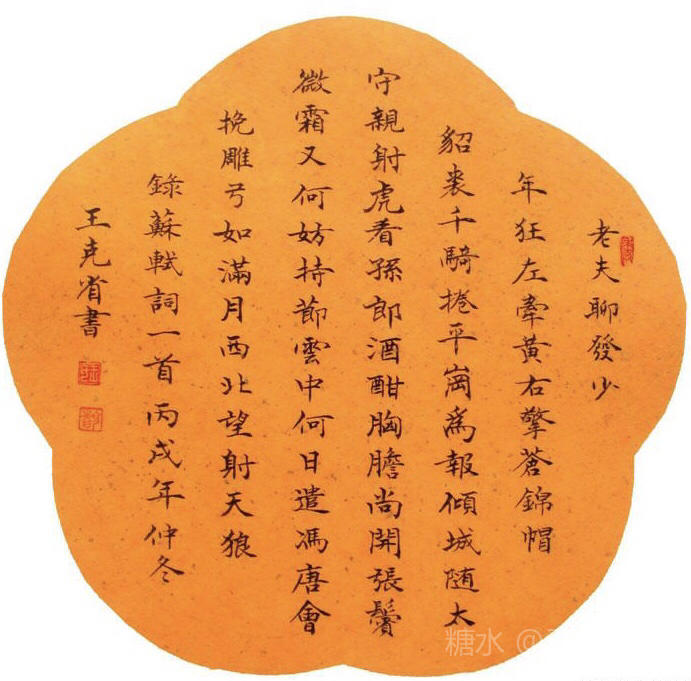 老夫聊發少
年狂左牽黃右擎蒼錦帽
貂裘千騎捲平崗為報傾城随太
守親射虎看孫郎酒酣胸膽尚開張鬢
微霜又何妨持節雲中何日遣馮唐會
挽雕弓如滿月西北望射天狼
錄蘇軾詞一首丙戌年仲冬
王克省書
糖水 @